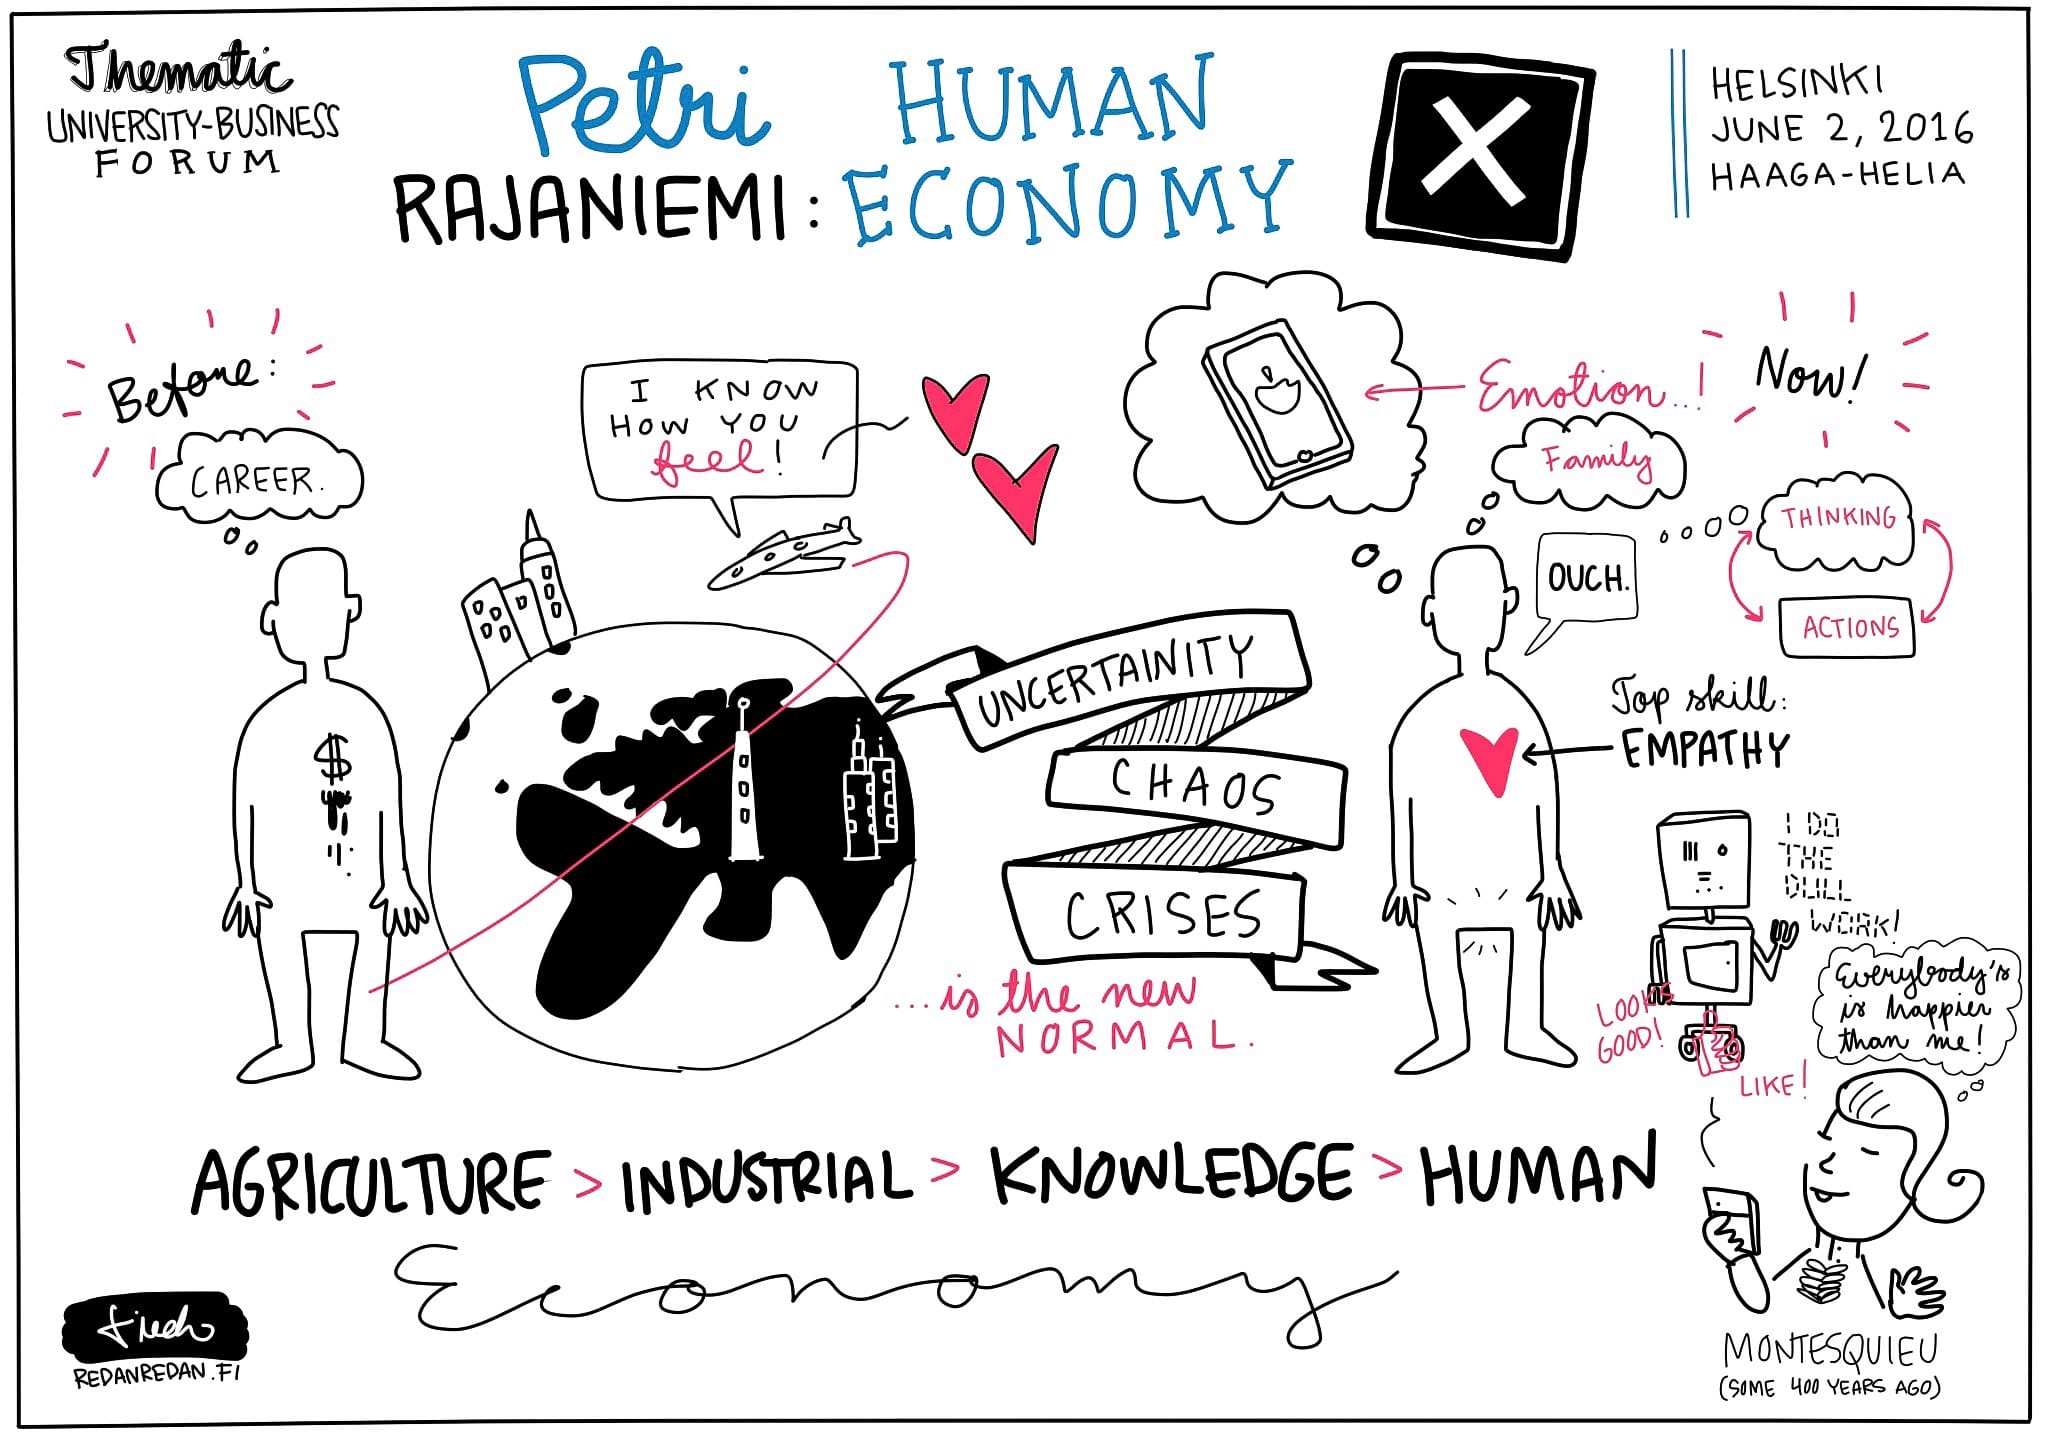 Thematic
UNIVERSITY-BUSINESS
FORUM
Petri HUMAN
RAJANIEMI: ECONOMY
X
HELSINKI
JUNE 2, 2016
HAAGA-HELIA
Before:
CAREER.
$
I KNOW
HOW YOU
feel!
Emotion...!
Now!
Family
OUCH.
THINKING
ACTIONS
UNCERTAINITY
CHAOS
CRISES
...is the new
NORMAL.
Top skill:
EMPATHY
I DO
THE
DULL
WORK!
LOOKS
GOOD!
LIKE!
Everybody's
is happier
than me!
AGRICULTURE > INDUSTRIAL > KNOWLEDGE > HUMAN
Economy
MONTESQUIEU
(SOME 400 YEARS AGO)
REDANREDAN.FI